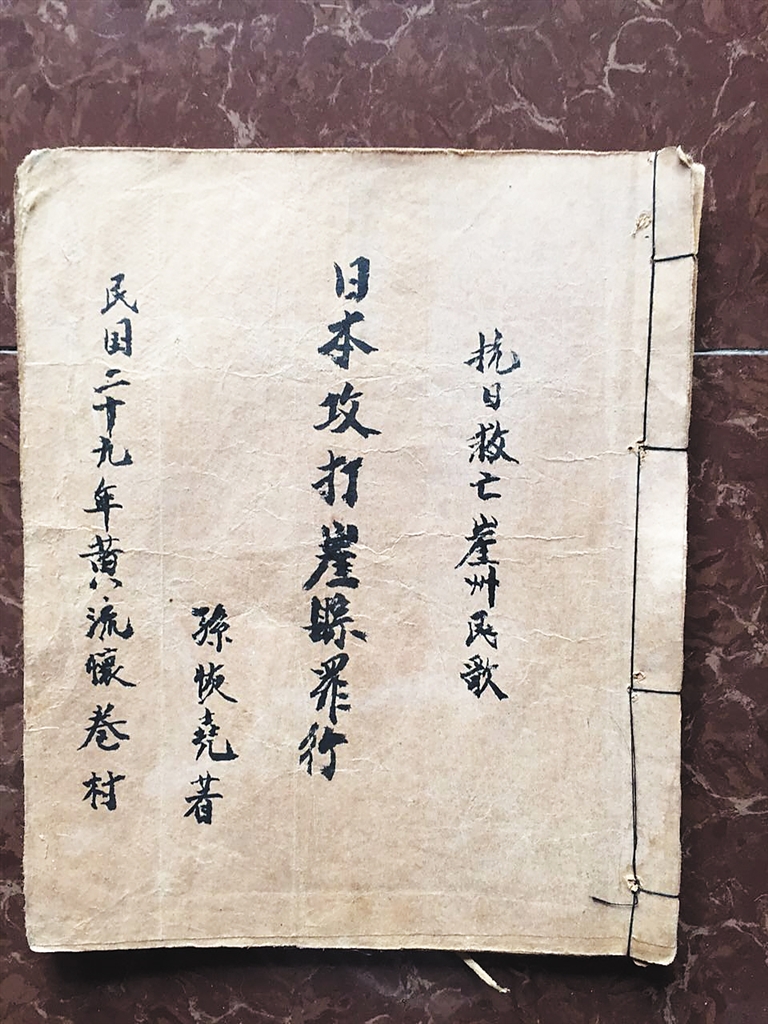 抗日救亡崖州民歌
日本攻打崖縣罪行
孫恢堯著
民国二十九年黄流懷巷村